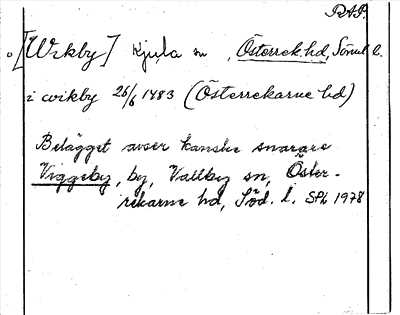 RAP.
[Wikby] Kjula sn, Österrek. hd, Söml l.
i wikby 26/6 1483 (Österrekarne hd)
Belägget avser kanske snarare
Viggeby, by, Vallby sn, Öster-
rekarne hd, Söd. l. SPh 1978